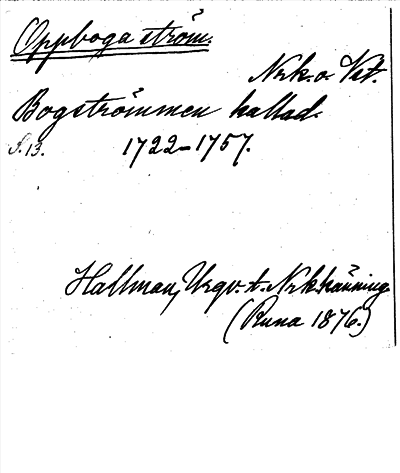 Oppboga ström.
Nrk. o. Vst.
Bogströmmen kallad.
S. 13. 1722–1757.
Hallman, Urgv. t. Nrk.känning
(Runa 1876.)